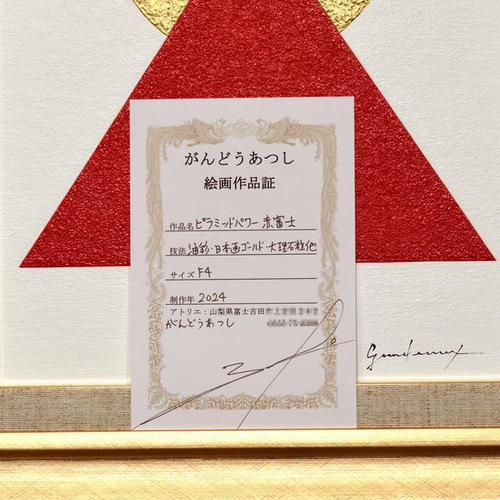 がんどうあつし
絵画作品証
作品名 ピラミッドパワー 赤富士
技法 油彩・日本画ゴールド 大理石粒他
サイズ F4
制作年 2024
アトリエ：山梨県富士吉田
がんどうあつし